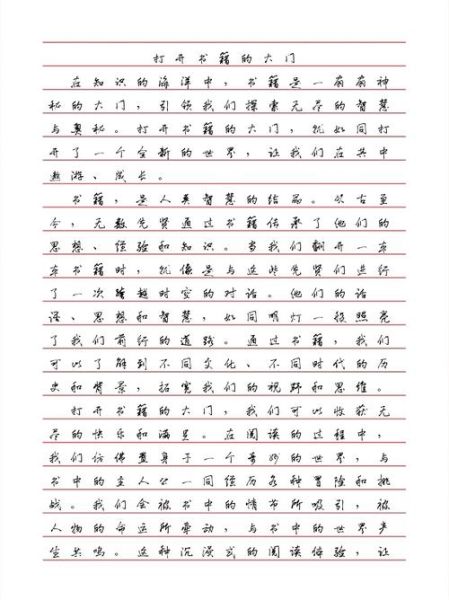 打开书籍的大门
在知识的海洋中，书籍是一扇扇神
秘的大门，引领我们探索无尽的智慧
与奥秘。打开书籍的大门，就如同打
开了一个全新的世界，让我们在其中
遨游、成长。
书籍，是人类智慧的结晶。从古至
今，无数先贤通过书籍传承了他们的
思想、经验和知识。当我们翻开一本
本书籍时，就像是与这些先贤们进行
了一次跨越时空的对话。他们的话
语、思想和智慧，如同明灯一般照亮
了我们前行的道路。通过书籍，我们
可以了解到不同文化、不同时代的历
史和背景，拓宽我们的视野和思维。
打开书籍的大门，我们可以收获无
尽的快乐和满足。在阅读的过程中，
我们仿佛置身于一个奇妙的世界，与
书中的主人公一同经历各种冒险和挑
战。我们会被书中的情节所吸引，被
人物的命运所牵动，与书中的世界产
生共鸣。这种沉浸式的阅读体验，让